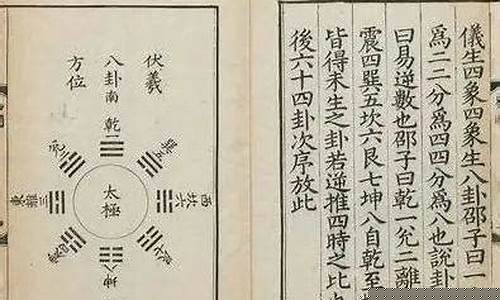 儀生四象四象生八卦邵子曰一
爲二二分爲四四分爲八也說卦
曰易逆數也邵子曰乾一兌二離
震四巽五坎六艮七坤八自乾至
皆得未生之卦若逆推四時之比
後六十四卦次序放此
伏羲
八卦
方位
南
乾一
巽五
西坎六
艮七
坤八
震四
東離三
兌二
太極